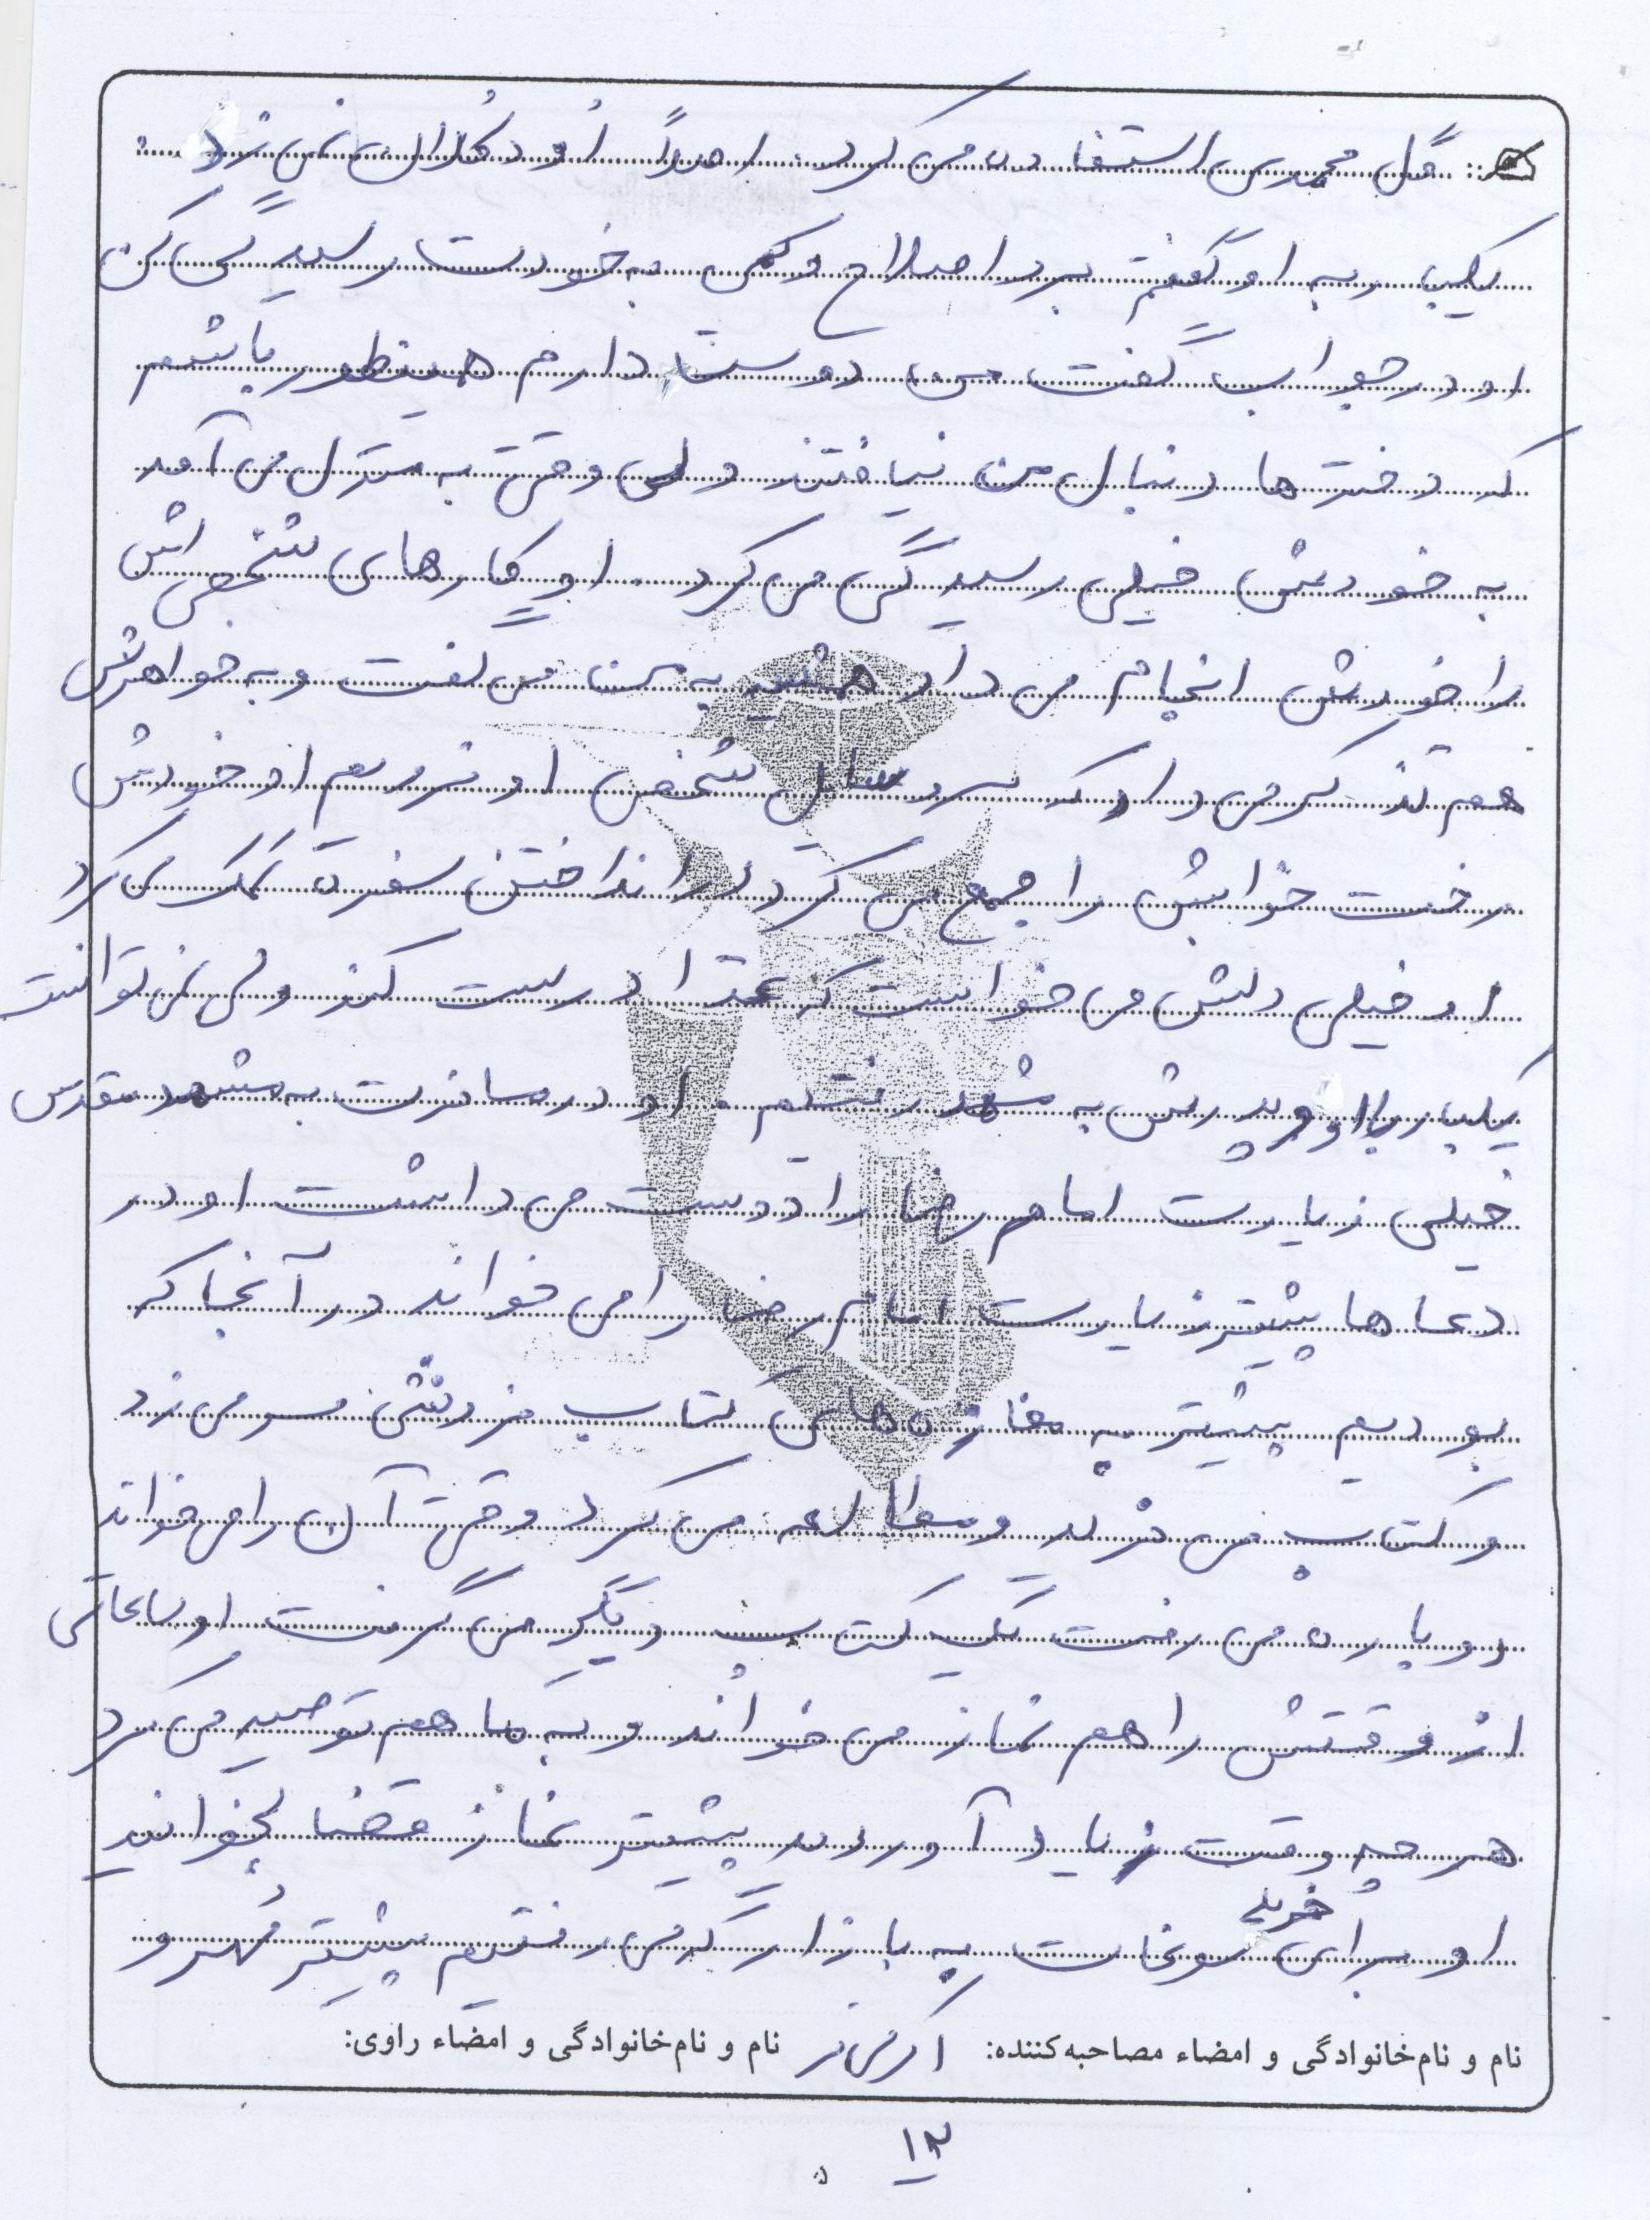 گل محمدی استفاده می کرد. اصلاً او دکلان نمی زد.
یکبار به او گفتم برو اصلاح و کمی به خودت رسیدگی کن
او در جواب گفت من دوست دارم همینطور باشم
که دخترها دنبال من نیافتند ولی وقتی به منزل می آمد
به خودش خیلی رسیدگی می کرد. او کارهای شخصی اش
را خودش انجام می داد همیشه به من می گفت و به خواهرش
هم تذکر می داد که سر وسایل شخصی او نرویم او خودش
رخت خوابش را جمع می کرد در انداختن سفره کمک می کرد
او خیلی دلش می خواست که غذا درست کند ولی نمی توانست
یکبار با او و پدرش به مشهد رفتیم. او در مسافرت به مشهد مقدس
خیلی زیارت امام رضا را دوست می داشت او در
دعاها بیشتر زیارت امام رضا را می خواند در آنجا که
بودیم بیشتر به مغازه های کتاب فروشی سر می زد
و کتاب می خرید و مطالعه می کرد وقتی آن را می خواند
دوباره می رفت یک کتاب دیگر می گرفت او ساعاتی
از وقتش را هم نماز می خواند و به ما هم توصیه می کرد
هر چه وقت زیاد آوردید بیشتر نماز قضا بخوانید
او برای خرید سوغات به بازار که می رفتیم بیشتر مهر و
نام و نام‌خانوادگی و امضاء مصاحبه‌کننده: نام و نام‌خانوادگی و امضاء راوی:
۱۳